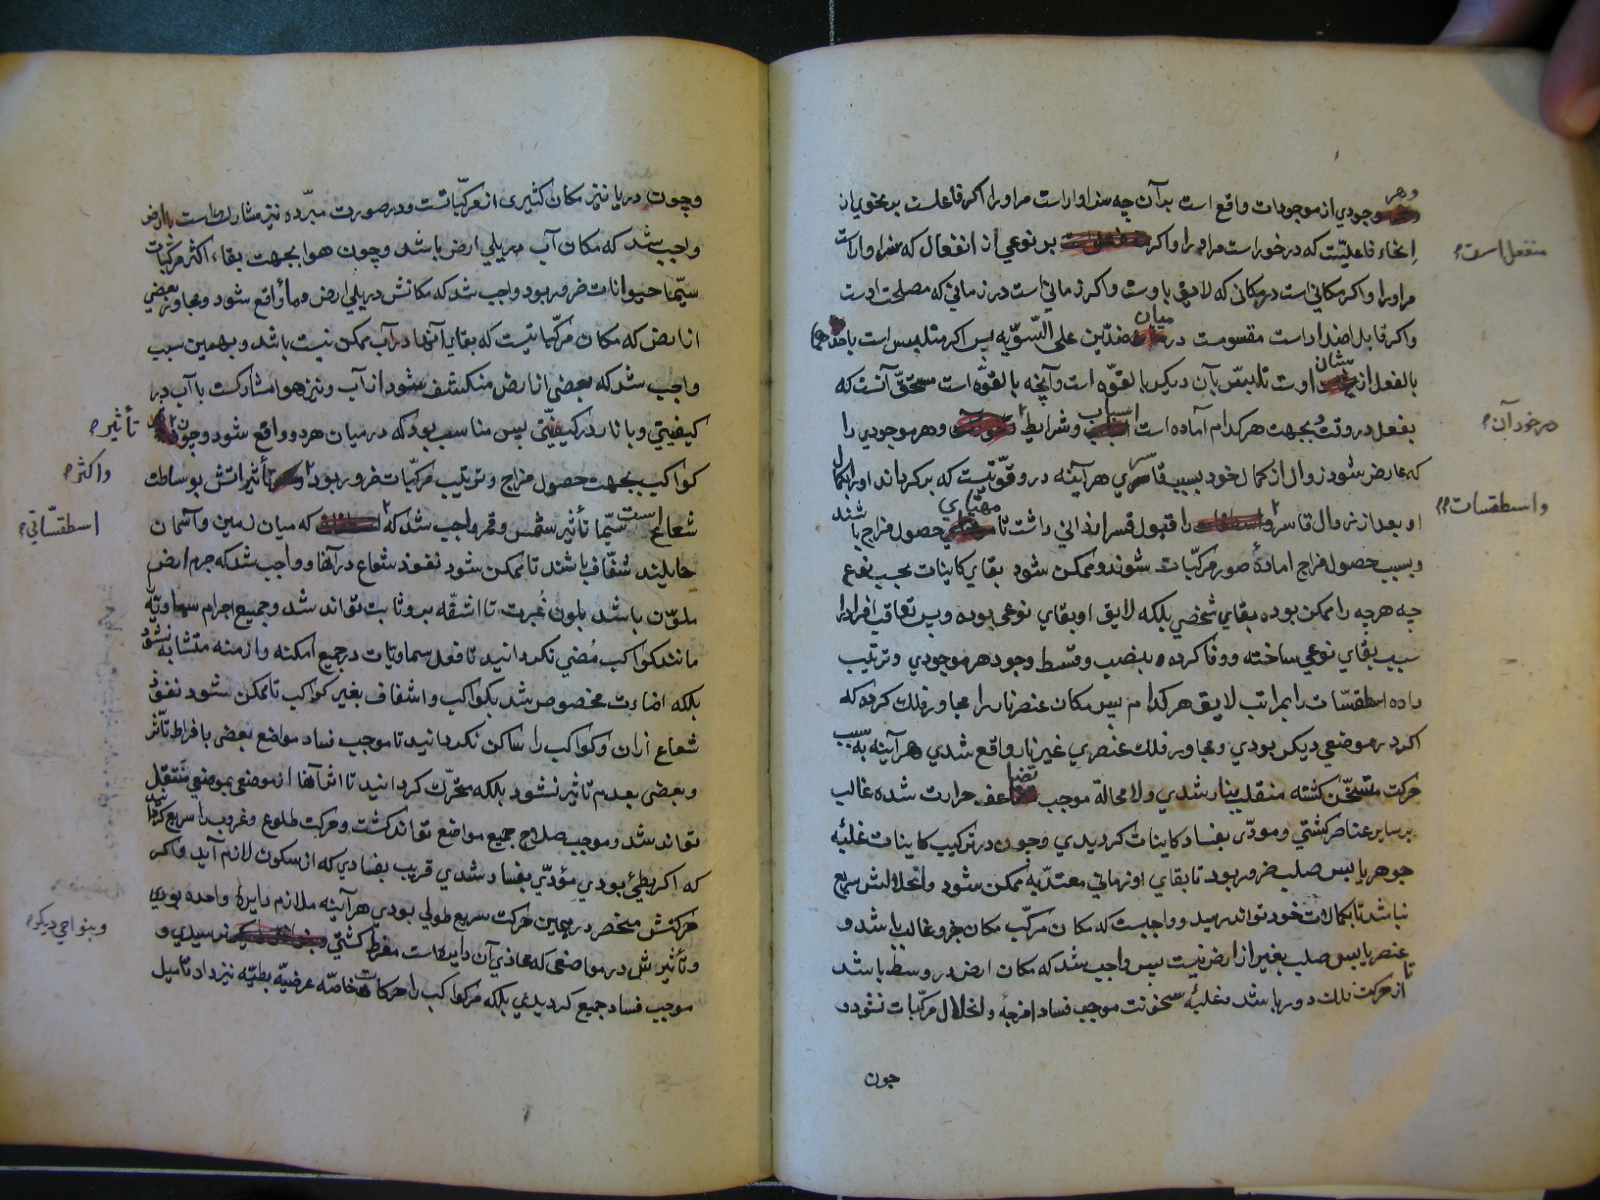 وهر
وجودي از موجودات واقع است بدآن چه سزاوار است مر او را اکر فاعلست بر نحوی از
اِنحاء فاعلیّت که در خور است مر او را و اکر بر نوعي از انفعال که سزاوار است
منفعل است
مر او را و اکر مکاني است در مکاني که لایق باوست و اکر زماني است در زماني که مصلحت اوست
و اکر قابل اضداد است مقسومست در میان ضدّین علی السّویّه پس اکر متلبس است باحدهما
بالفعل از شان اوست تلبّس بآن دیکر بالقوّه است و آنچه بالقوّه است مستحقّ آنست که
بفعل در وقت و بجهت هر کدام آماده است اسباب و شرایط و هر موجودي را
در خور آن
که عارض شود زوال از کمال خود بسبب قاسري هر آینه در و قوّتیست که بر کرداند او را بکمال
او بعد از زوال قاسر و را قبول قسر ارزاني داشت تا مهیّاي حصول مزاج باشند
واسطقسات
و بسبب حصول مزاج امادهٔ صور مرکّبات شوند و ممکن شود بقاي کاینات بحسب نوع
چه هرچه را ممکن بوده بقاي شخصي بلکه لایق او بقاي نوعي بوده و پس تعاقب افراد را
سبب بقاي نوعي ساخته و وفا کرده بنصیب و قسط وجود هر موجودي و ترتیب
داده اسطقسّات را بمراتب لایق هر کدام پس مکان عنصر نار را مجاور فلک کرده که
اکر در موضعي دیکر بودي و مجاور فلک عنصري غیر نار واقع شدي هر آینه بسبب
حرکت متسخّن کشته منقلب بنار شدي و لامحالة موجب تضاعف حرارت شده غالب
بر سایر عناصر کشتي و مودّي بفساد کاینات کردیدي و چون در ترکیب کاینات غلبهٔ
جوهر یابس صلب ضرور بود تا بقاي او زماني معتدّبه ممکن شود و انحلالش سریع
نباشد تا بکمالات خود تواند رسید و واجبست که مکان مرکّب مکان جزو غالب باشد و
عنصر یابس صلب بغیر از ارض نیست پس واجب شد که مکان ارض در وسط باشد
تا از حرکت فلک دور باشد و غلبهٔ سخونت موجب فساد امزجه و انحلال مرکّبات نشود و
چون
و چون دریا نیز مکان کثیری از مرکّباتست و در صورت مبرّده نیز مشارک است با ارض
واجب شد که مکان آب در یلي ارض باشد و چون هوا بجهت بقاء اکثر مرکّبات
سیّما حیوانات ضرور بود واجب شد که مکانش در یلي ارض و ماء واقع شود و مجاور بعضي
از ارض که مکان مرکّباتیست که بقاي آنها در آب ممکن نیست باشد و بهمین سبب
واجب شد که بعضی از ارض منکشف شود از آب و نیز هوا مشارکست با آب در
کیفیّتي و با نار در کیفیّتي پس مناسب بود که در میان هر دو واقع شود و چون
تأثیر
کواکب بجهت حصول مزاج و ترتیب مرکّبات ضرور بود تأثیراتش بوساطت
واکثر
شعاع است سیّما تأثیر شمس و قمر واجب شد که که میان زمین و آسمان
اسطقسّاتي
حایلند شفّاف باشند تا ممکن شود نفوذ شعاع در آنها و واجب شد که جرم ارض
ملوّن باشد بلون غُبرت تا اشعّه برو ثابت تواند شد و جمیع اجرام سماویّه
مانند کواکب مُضي نکردانید تا فعل سماویات در جمیع امکنه و ازمنه متشابه نشود
بلکه اضاءت مخصوص شد بکواکب و اشفاف بغیر کواکب تا ممکن شود نفوذ
شعاع از ان و کواکب را ساکن نکردانید تا موجب فساد مواضع بعضی بافراط تأثّر
و بعضی بعدم تاثیر نشود بلکه متحرّک کردانید تا اثر آنها از موضعي بموضعي منتقل
تواند شد و موجب صلاح جمیع مواضع تواند کشت و حرکت طلوع و غروب را سریع کردانید
که اکر بطيء بودي مؤدّي بفساد شدي قریب بفسادي که از سکون لازم آید و اکر
حرکتش منحصر در همین حرکت سریع طولي بودي هر آینه ملازم دایرهٔ واحده بودي
و تأثیرش در مواضعي که محاذي آن دایره است مفرط کشتي نرسیدي و
وبنواحي دیکر
موجب فساد جمیع کردیدي بلکه مر کواکب را حرکات خاصّه عرضیّه بطیّه نیز داد تا میل